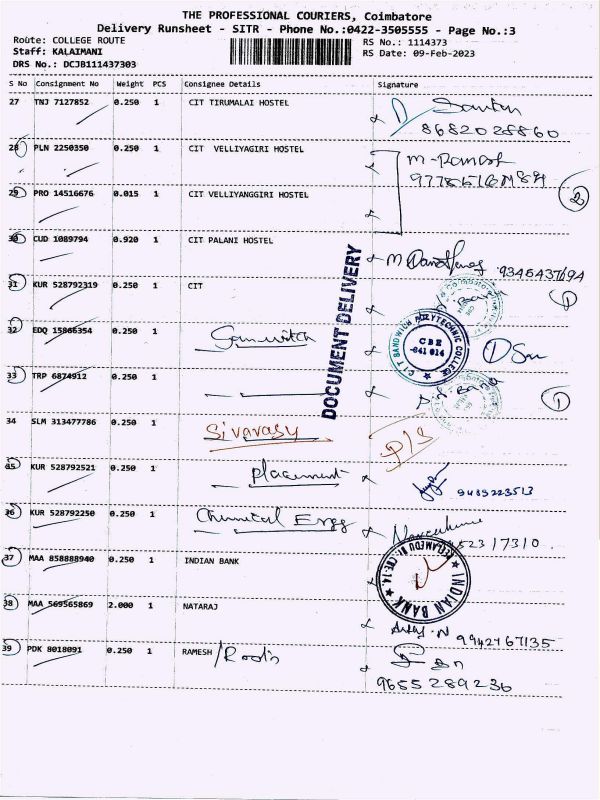 THE PROFESSIONAL COURIERS, Coimbatore
Delivery Runsheet - SITR - Phone No.:0422-3505555 - Page No.:3
Route: COLLEGE ROUTE
RS No.: 1114373
Staff: KALAIMANI
RS Date: 09-Feb-2023
DRS No.: DCJB111437303
S No Consignment No Weight PCS Consignee Details Signature
27 TNJ 7127852 0.250 1 CIT TIRUMALAI HOSTEL
8682028860
28 PLN 2250350 0.250 1 CIT VELLIYAGIRI HOSTEL
M-Ramesh
29 PRO 14516676 0.015 1 CIT VELLIYANGGIRI HOSTEL
2
30 CUD 1089794 0.920 1 CIT PALANI HOSTEL
9345437194
31 KUR 528792319 0.250 1 CIT
1
DOCUMENT DELIVERY
32 EDQ 15866354 0.250 1 Sandwitch
CIT SANDWICH POLYTECHNIC COLLEGE
CBE
-641 014
33 TRP 6874912 0.250 1
1
34 SLM 313477786 0.250 1 Sivarasy P/S
35 KUR 528792521 0.250 1 Placement
9489223513
36 KUR 528792250 0.250 1 Chemical Engg
37 MAA 858888940 0.250 1 INDIAN BANK
INDIAN BANK
38 MAA 569565869 2.000 1 NATARAJ
9942467135
39 PDK 8018091 0.250 1 RAMESH
9655289236